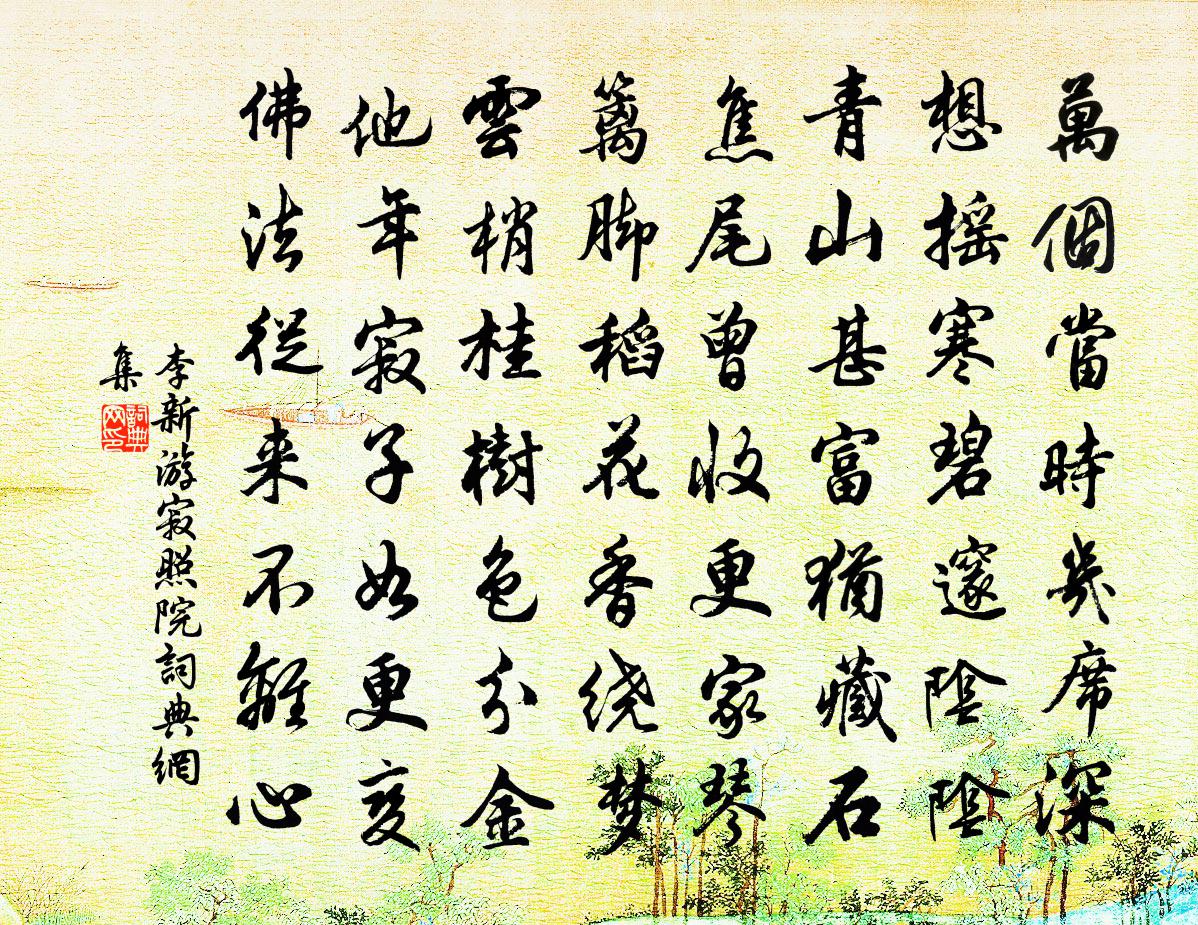 萬個當時幾席深
想搖寒碧邃陰陰
青山甚富猶藏石
焦尾曾收更家琴
籬脚稻花香绕梦
雲梢桂樹色分金
他年寂子如更變
佛法從来不離心
李新游寂照院詞典網
集
詞典网印